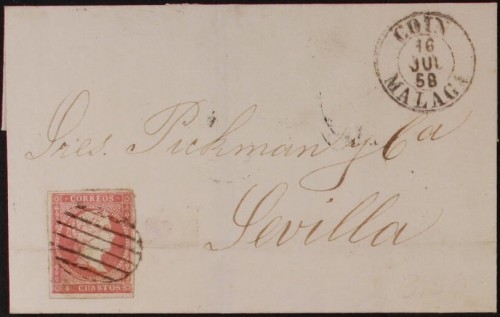 COIN
16
JUL
58
MALAGA
Sres. Pickman y Ca
Sevilla
CORREOS
4 CUARTOS